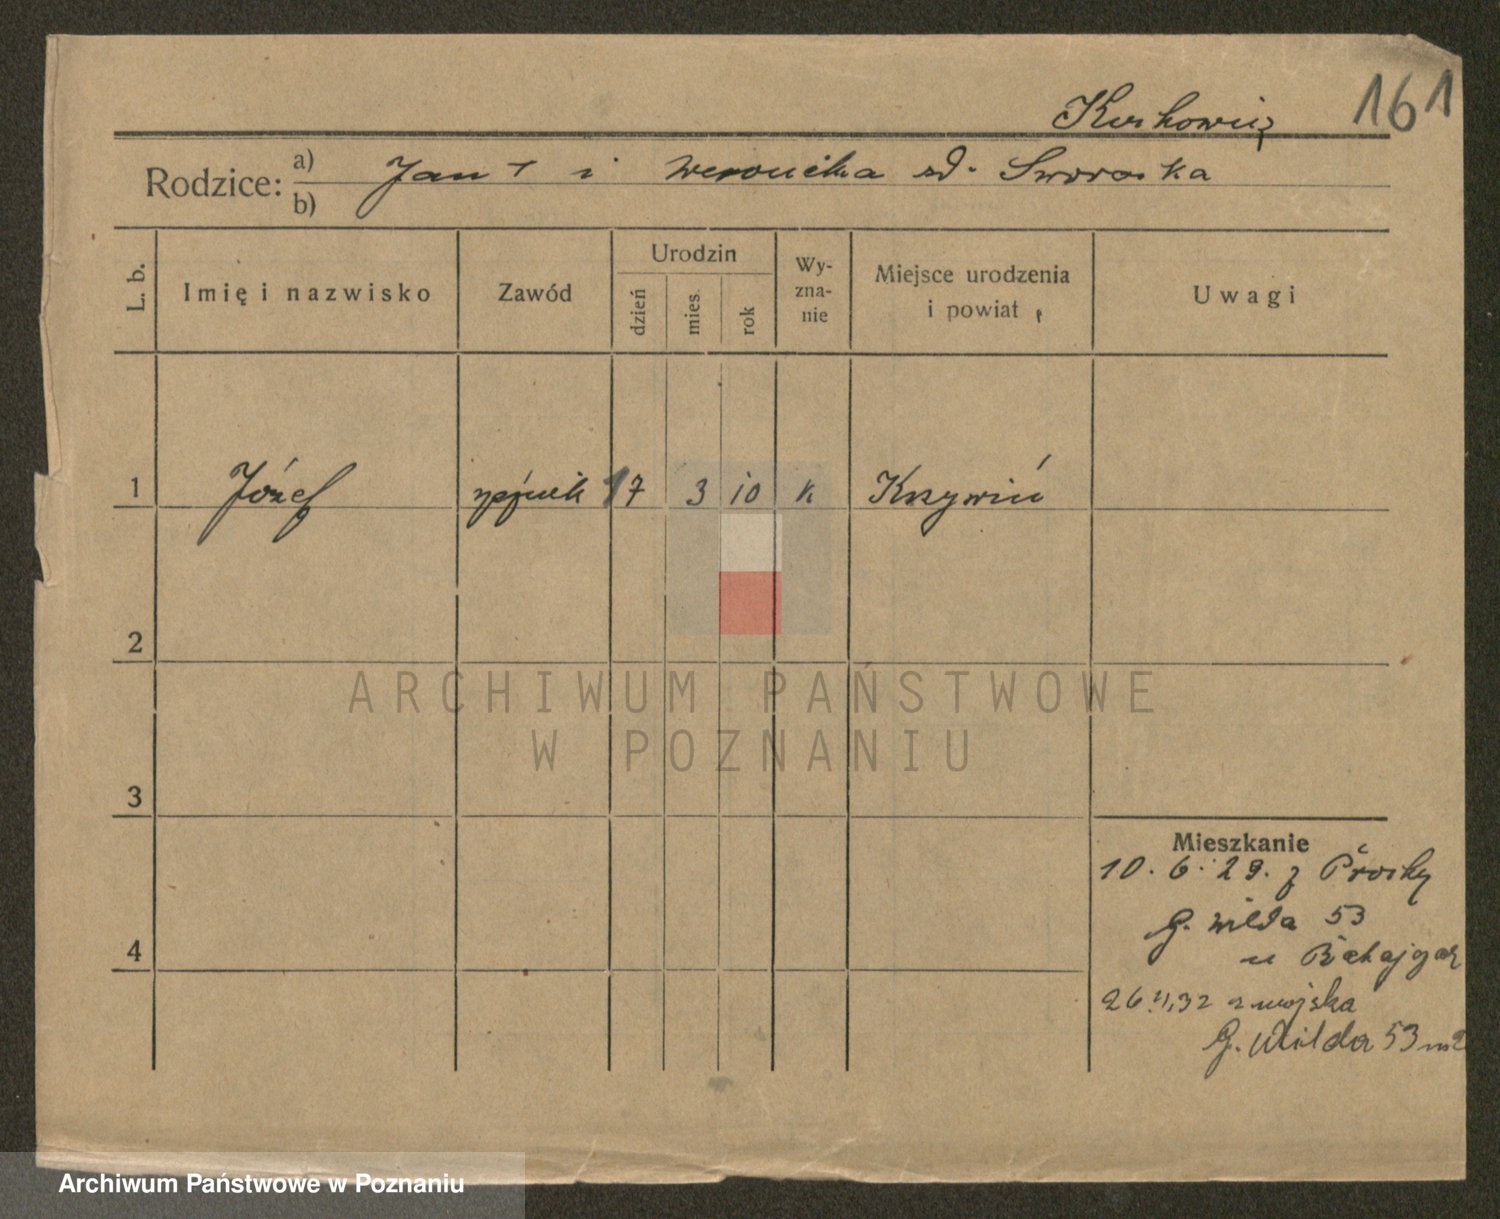 161
Kurkowicz
Rodzice: a) b) Jan † i Weronika zd. Sworowska
L. b. Imię i nazwisko Zawód Urodzin dzień mies. rok Wyznanie Miejsce urodzenia i powiat Uwagi
1 Józef 17 3 10 k Krzywiń
2
ARCHIWUM PAŃSTWOWE
W POZNANIU
3
Mieszkanie
10. 6. 29. z
G. Wilda 53
4
u
26.11.32 z wojska
G. Wilda 53 m2
Archiwum Państwowe w Poznaniu